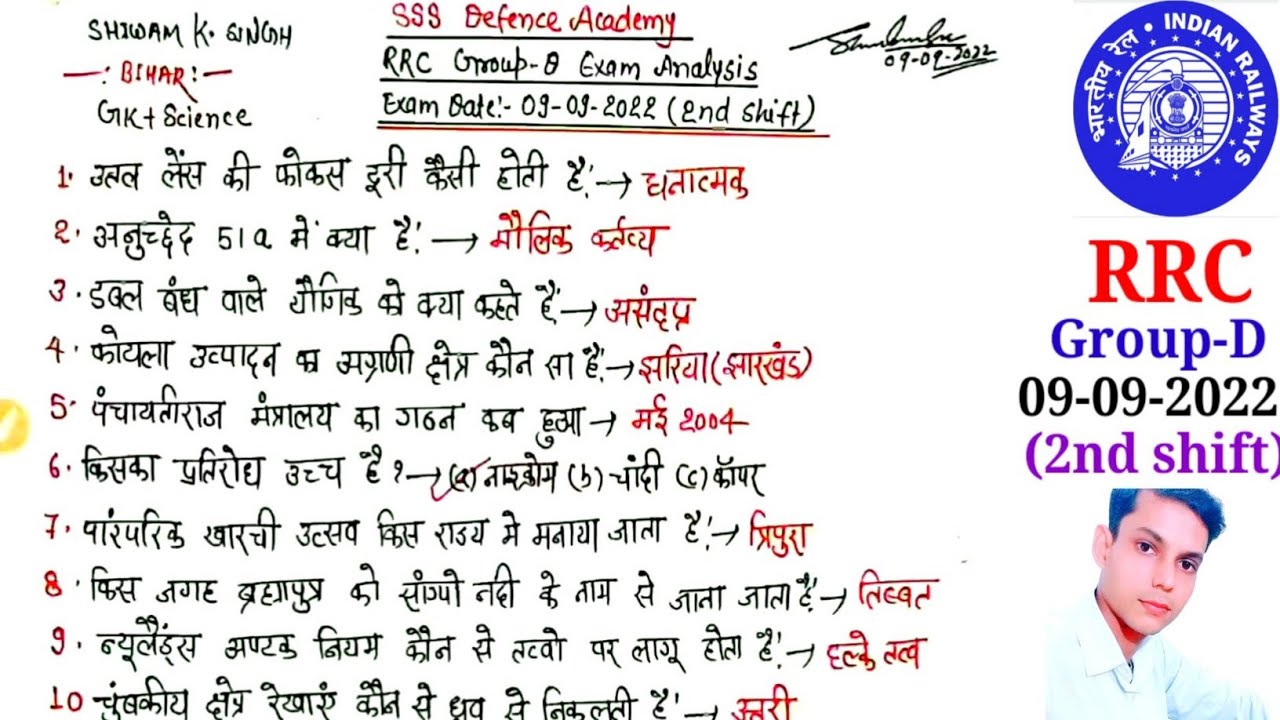 SHIWAM K. SINGH
—: BIHAR :—
GK+ Science
SSS Defence Academy
RRC Group-D Exam Analysis
Exam Date:- 09-09-2022 (2nd shift)
09-09-2022
1. उत्तल लेंस की फोकस दूरी कैसी होती है? → धनात्मक
2. अनुच्छेद 51a में क्या है? → मौलिक कर्तव्य
3. डबल बंध वाले यौगिक को क्या कहते हैं → असंतृप्त
4. कोयला उत्पादन का अग्रणी क्षेत्र कौन सा है? → झरिया (झारखंड)
5. पंचायतीराज मंत्रालय का गठन कब हुआ → मई 2004
6. किसका प्रतिरोध उच्च है? → (a) नाइक्रोम (b) चांदी (c) कॉपर
7. पारंपरिक खारची उत्सव किस राज्य मे मनाया जाता है? → त्रिपुरा
8. किस जगह ब्रह्मपुत्र को सांग्पो नदी के नाम से जाना जाता है? → तिब्बत
9. न्यूलैंड्स अष्टक नियम कौन से तत्वो पर लागू होता है? → हल्के तत्व
10 चुंबकीय क्षेत्र रेखाएं कौन से ध्रुव से निकलती है → उत्तरी
भारतीय रेल • INDIAN RAILWAYS
RRC
Group-D
09-09-2022
(2nd shift)